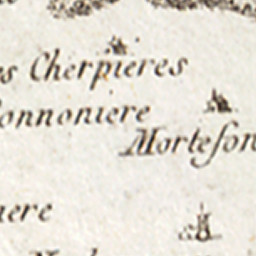 es Cherpieres
onnoniere
Morteſon
nere